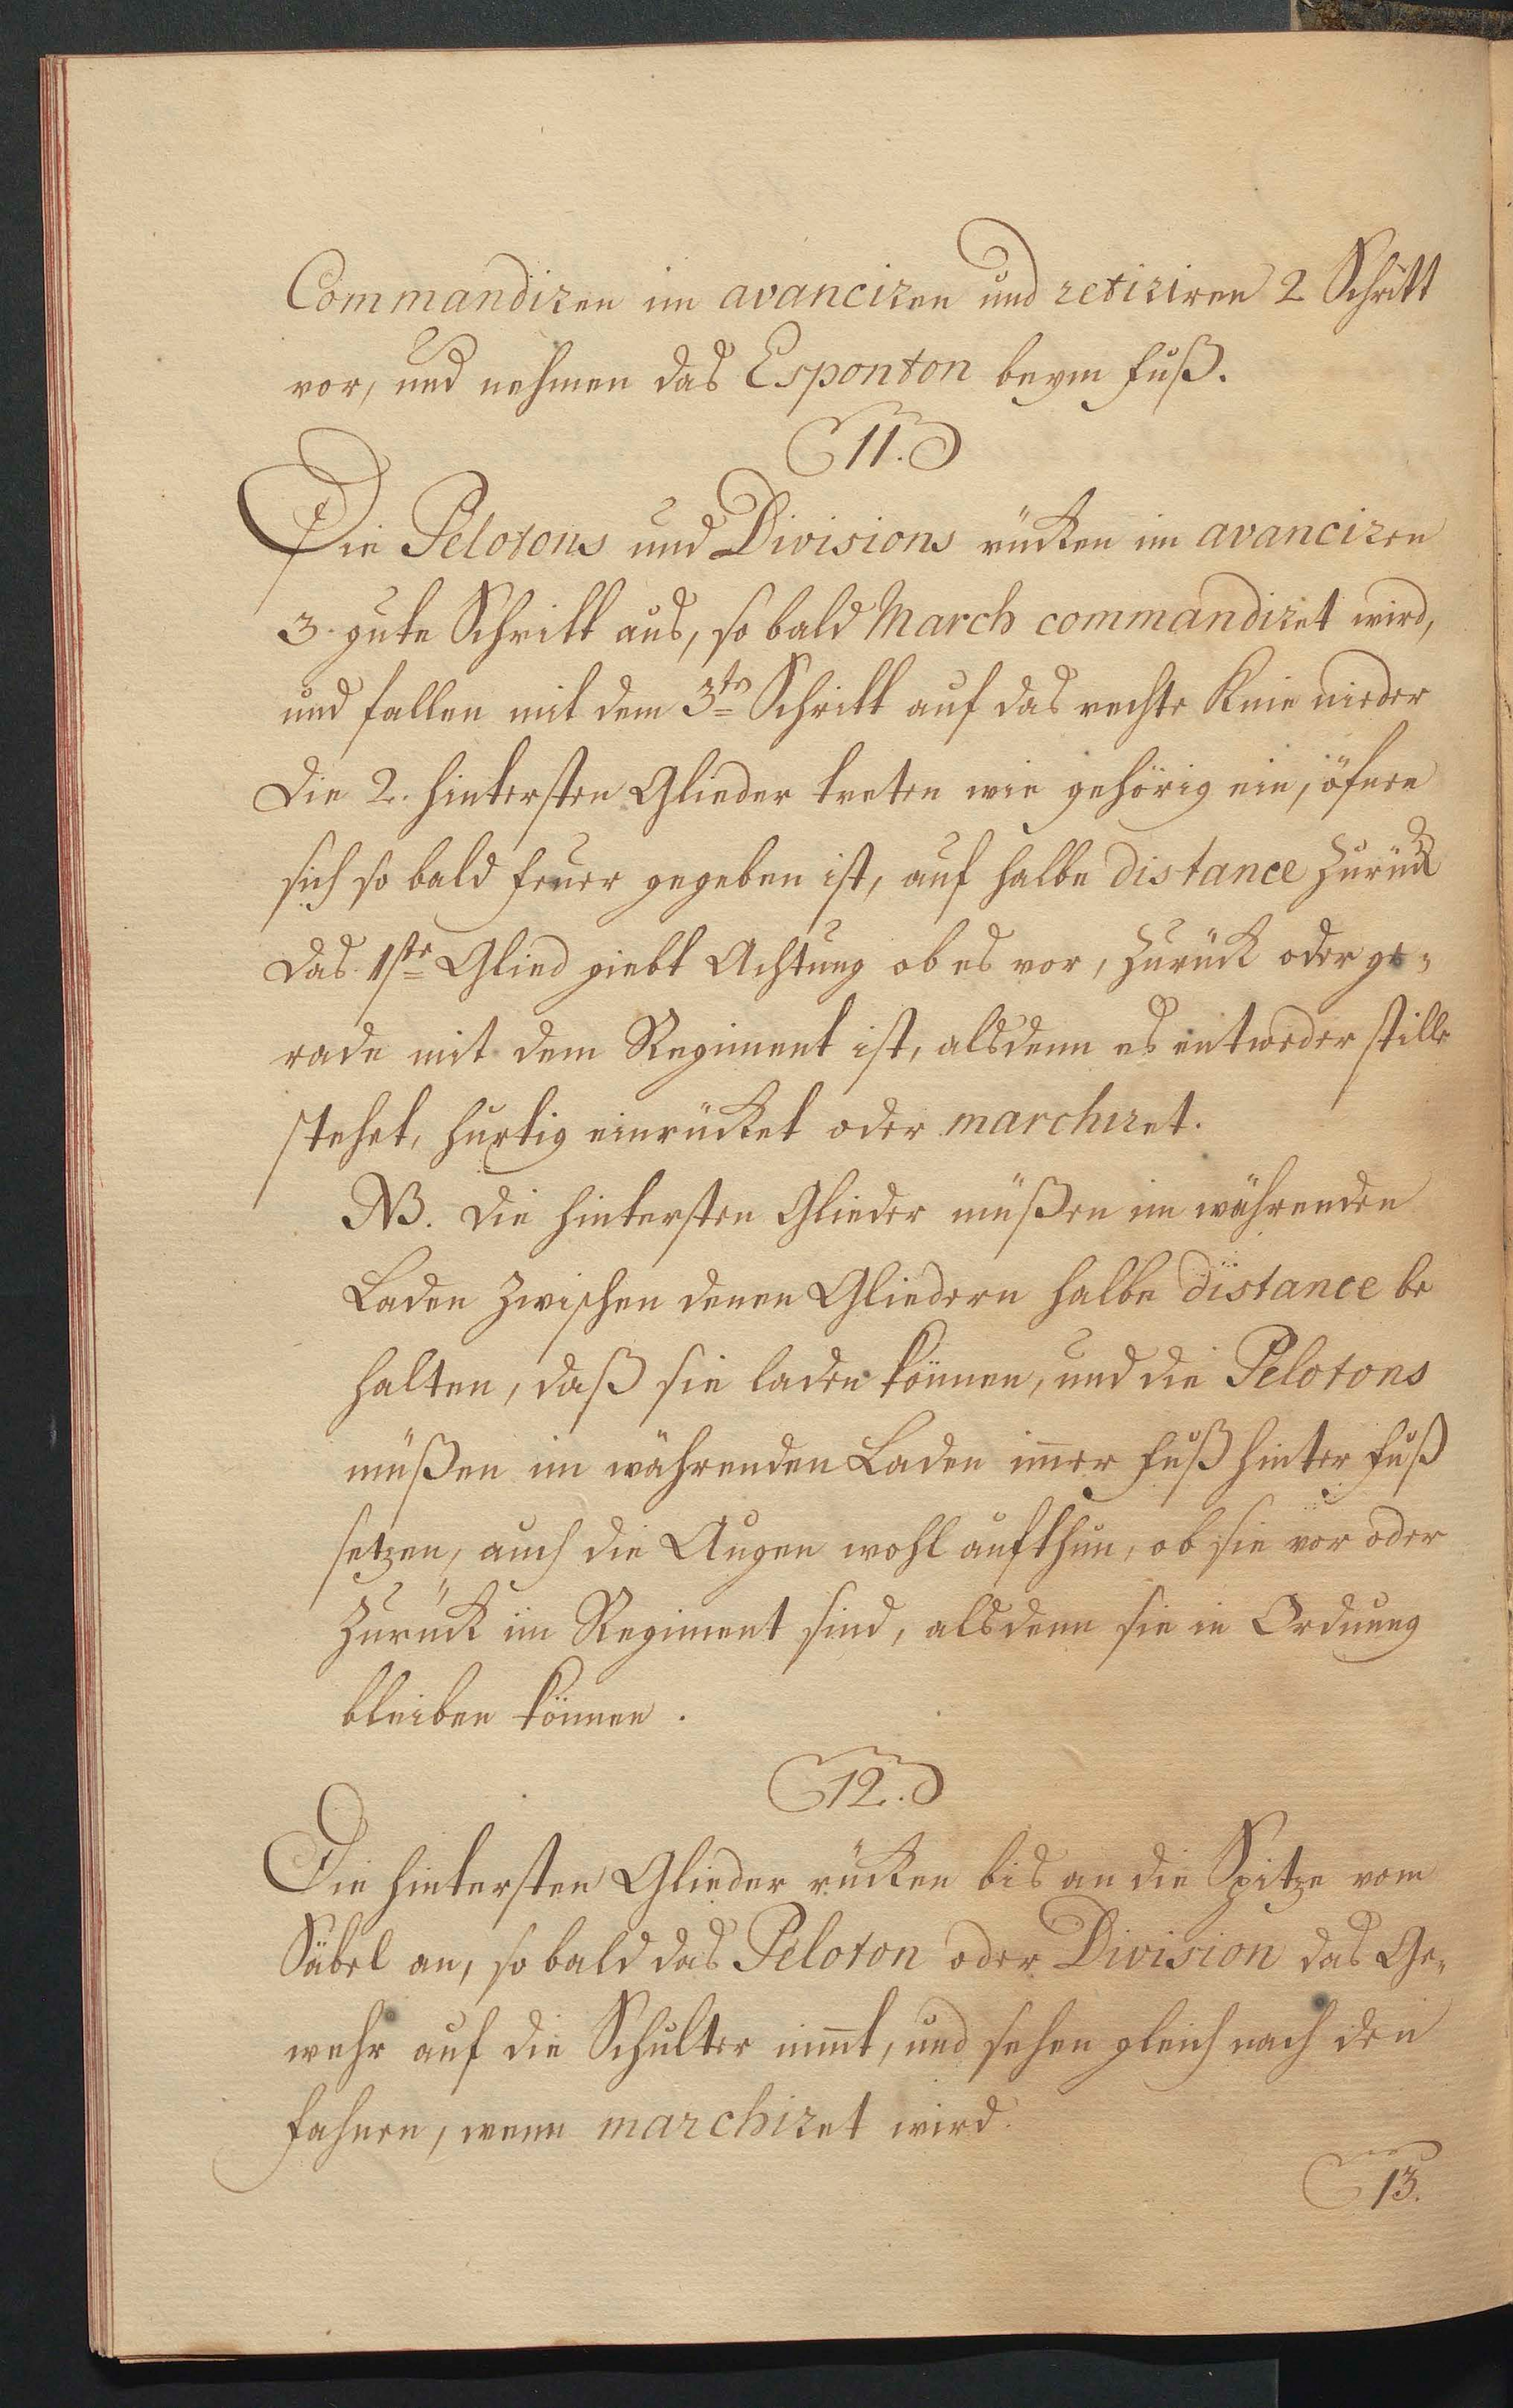 Commandiren im avanciren und retiriren 2 Schritt
vor, und nehmen das Esponton beym Fuß.
11.
Die Pelotons und Divisions rücken im avanciren
3. gute Schritt aus, so bald March commandiret wird,
und fallen mit dem 3te Schritt auf das rechte Knie nieder
die 2. hintersten Glieder treten wie gehörig ein, öfnen
sich so bald Feuer gegeben ist, auf halbe distance zurück
das 1ste Glied giebt Achtung ob es vor, zurück oder ge-
rade mit dem Regiment ist, alsdenn es entweder stille
stehet, hurtig einrücket oder marchiret.
NB. die hintersten Glieder müßen im währenden
Laden zwischen denen Gliedern halbe distance be
halten, daß sie laden können, und die Pelotons
müßen im währenden Laden im̄er Fuß hinter Fuß
setzen, auch die Augen wohl aufthun, ob sie vor oder
zurück im Regiment sind, alsdenn sie in Ordnung
bleiben können.
12.
Die hintersten Glieder rücken bis an die Spitze vom
Säbel an, so bald das Peloton oder Division das Ge-
wehr auf die Schulter nim̄t, und sehen gleich nach den
Fahnen, wenn marchiret wird.
13.